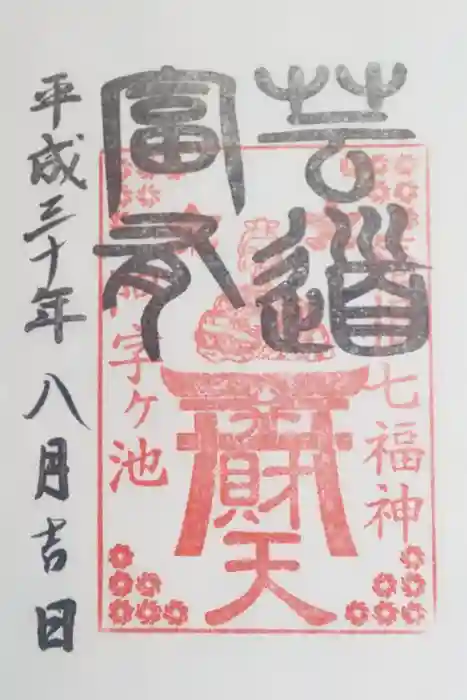 芸道
富
七福神
財天
字ヶ池
平成三十年 八月吉日